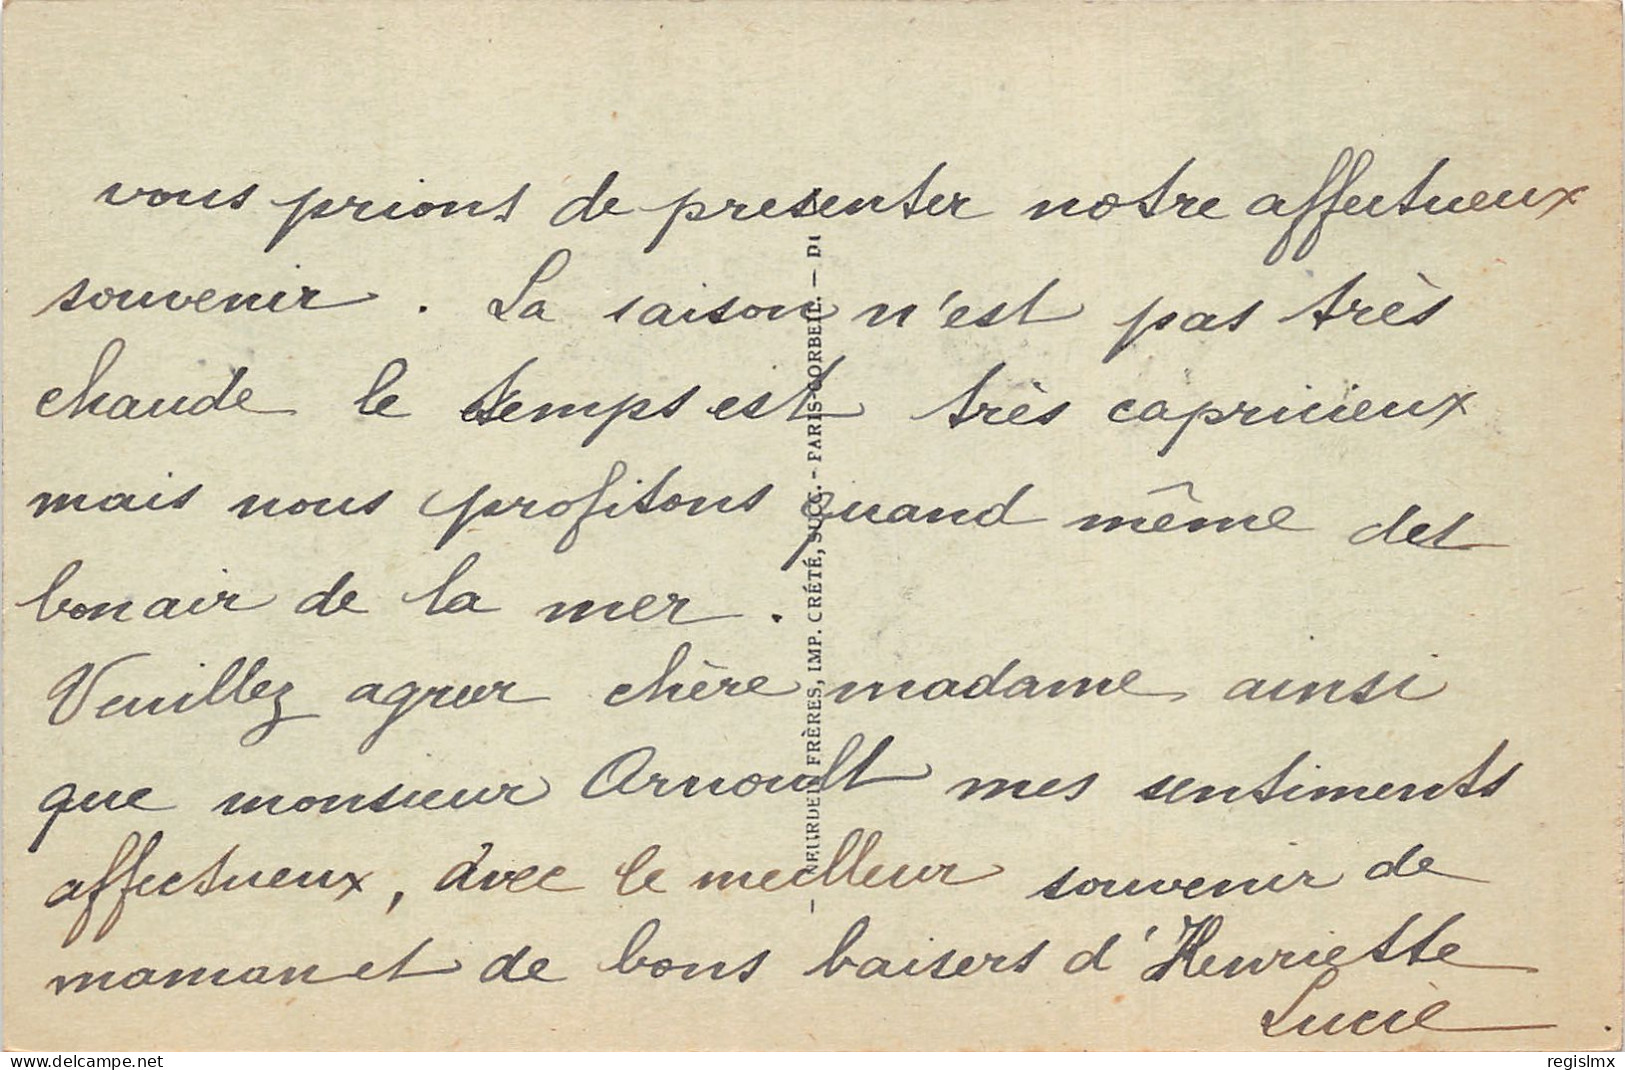 vous prions de presenter notre affectueux
souvenir. La saison n'est pas très
chaude le temps est très capricieux
mais nous profitons quand même del
bon air de la mer.
Veuillez agreer chère madame ainsi
que monsieur Arnoult mes sentiments
affectueux, avec le meilleur souvenir de
maman et de bons baisers d'Henriette
Lucie
NEURDEIN FRÈRES, IMP. CRÉTÉ, SUCC. - PARIS-CORBEIL. -
delcampe.net
regislmx